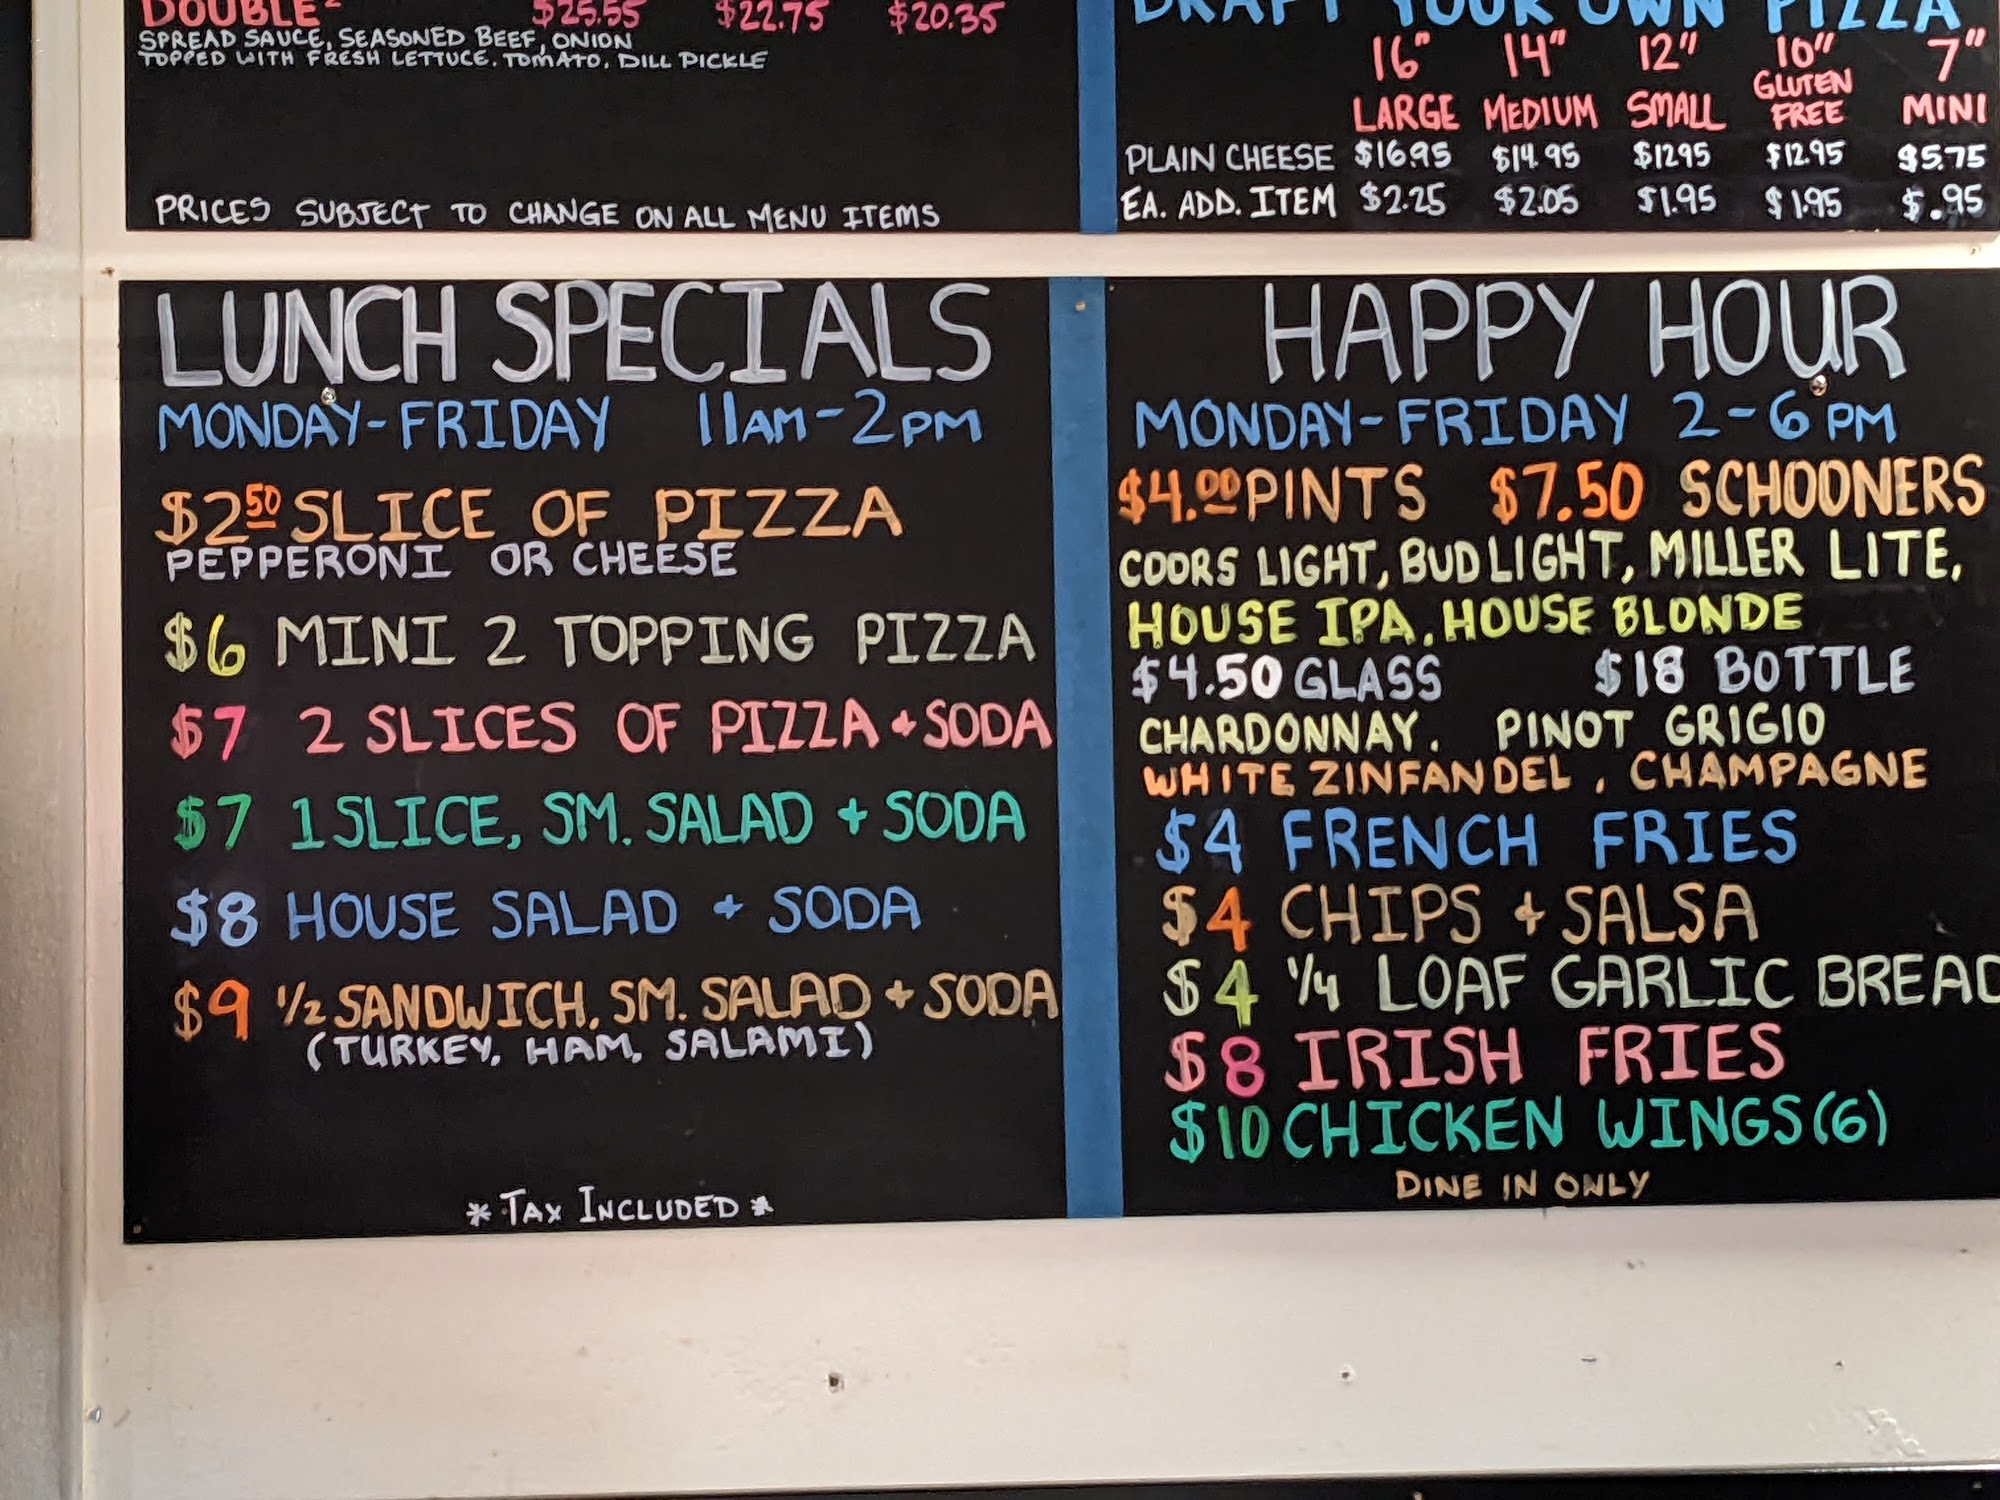 DOUBLE² $25.55 $22.75 $20.35
SPREAD SAUCE, SEASONED BEEF, ONION
TOPPED WITH FRESH LETTUCE, TOMATO, DILL PICKLE
PRICES SUBJECT TO CHANGE ON ALL MENU ITEMS
DRAFT YOUR OWN PIZZA
16" 14" 12" 10" 7"
GLUTEN
LARGE MEDIUM SMALL FREE MINI
PLAIN CHEESE $16.95 $14.95 $12.95 $12.95 $5.75
EA. ADD. ITEM $2.25 $2.05 $1.95 $1.95 $.95
LUNCH SPECIALS
MONDAY-FRIDAY 11AM-2PM
$2 50 SLICE OF PIZZA
PEPPERONI OR CHEESE
$6 MINI 2 TOPPING PIZZA
$7 2 SLICES OF PIZZA + SODA
$7 1 SLICE, SM. SALAD + SODA
$8 HOUSE SALAD + SODA
$9 1/2 SANDWICH, SM. SALAD + SODA
(TURKEY, HAM, SALAMI)
* TAX INCLUDED *
HAPPY HOUR
MONDAY-FRIDAY 2-6 PM
$4.00 PINTS $7.50 SCHOONERS
COORS LIGHT, BUD LIGHT, MILLER LITE,
HOUSE IPA, HOUSE BLONDE
$4.50 GLASS $18 BOTTLE
CHARDONNAY, PINOT GRIGIO
WHITE ZINFANDEL, CHAMPAGNE
$4 FRENCH FRIES
$4 CHIPS + SALSA
$4 1/4 LOAF GARLIC BREAD
$8 IRISH FRIES
$10 CHICKEN WINGS (6)
DINE IN ONLY